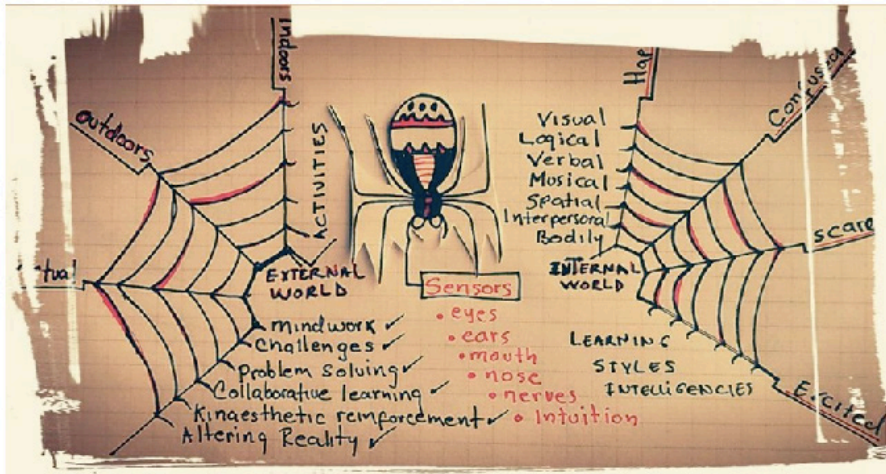 Indoors
Outdoors
ACTIVITIES
EXTERNAL
WORLD
mindwork ✓
Challenges ✓
Problem Solving ✓
Collaborative learning ✓
Kinaesthetic reinforcement ✓
Altering Reality ✓
Sensors
• eyes
• ears
• mouth
• nose
• nerves
• Intuition
Visual
Logical
Verbal
Musical
Spatial
Interpersonal
Bodily
INTERNAL
WORLD
LEARNING
STYLES
INTELLIGENCIES
Hap
Confussed
scare
Excited